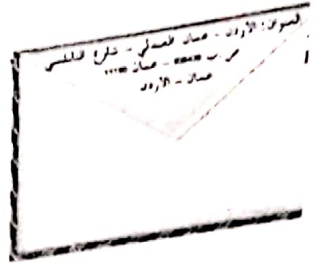 العنوان: الأردن - عمان العبدلي - شارع
ص.ب - عمان
عمان - الأردن